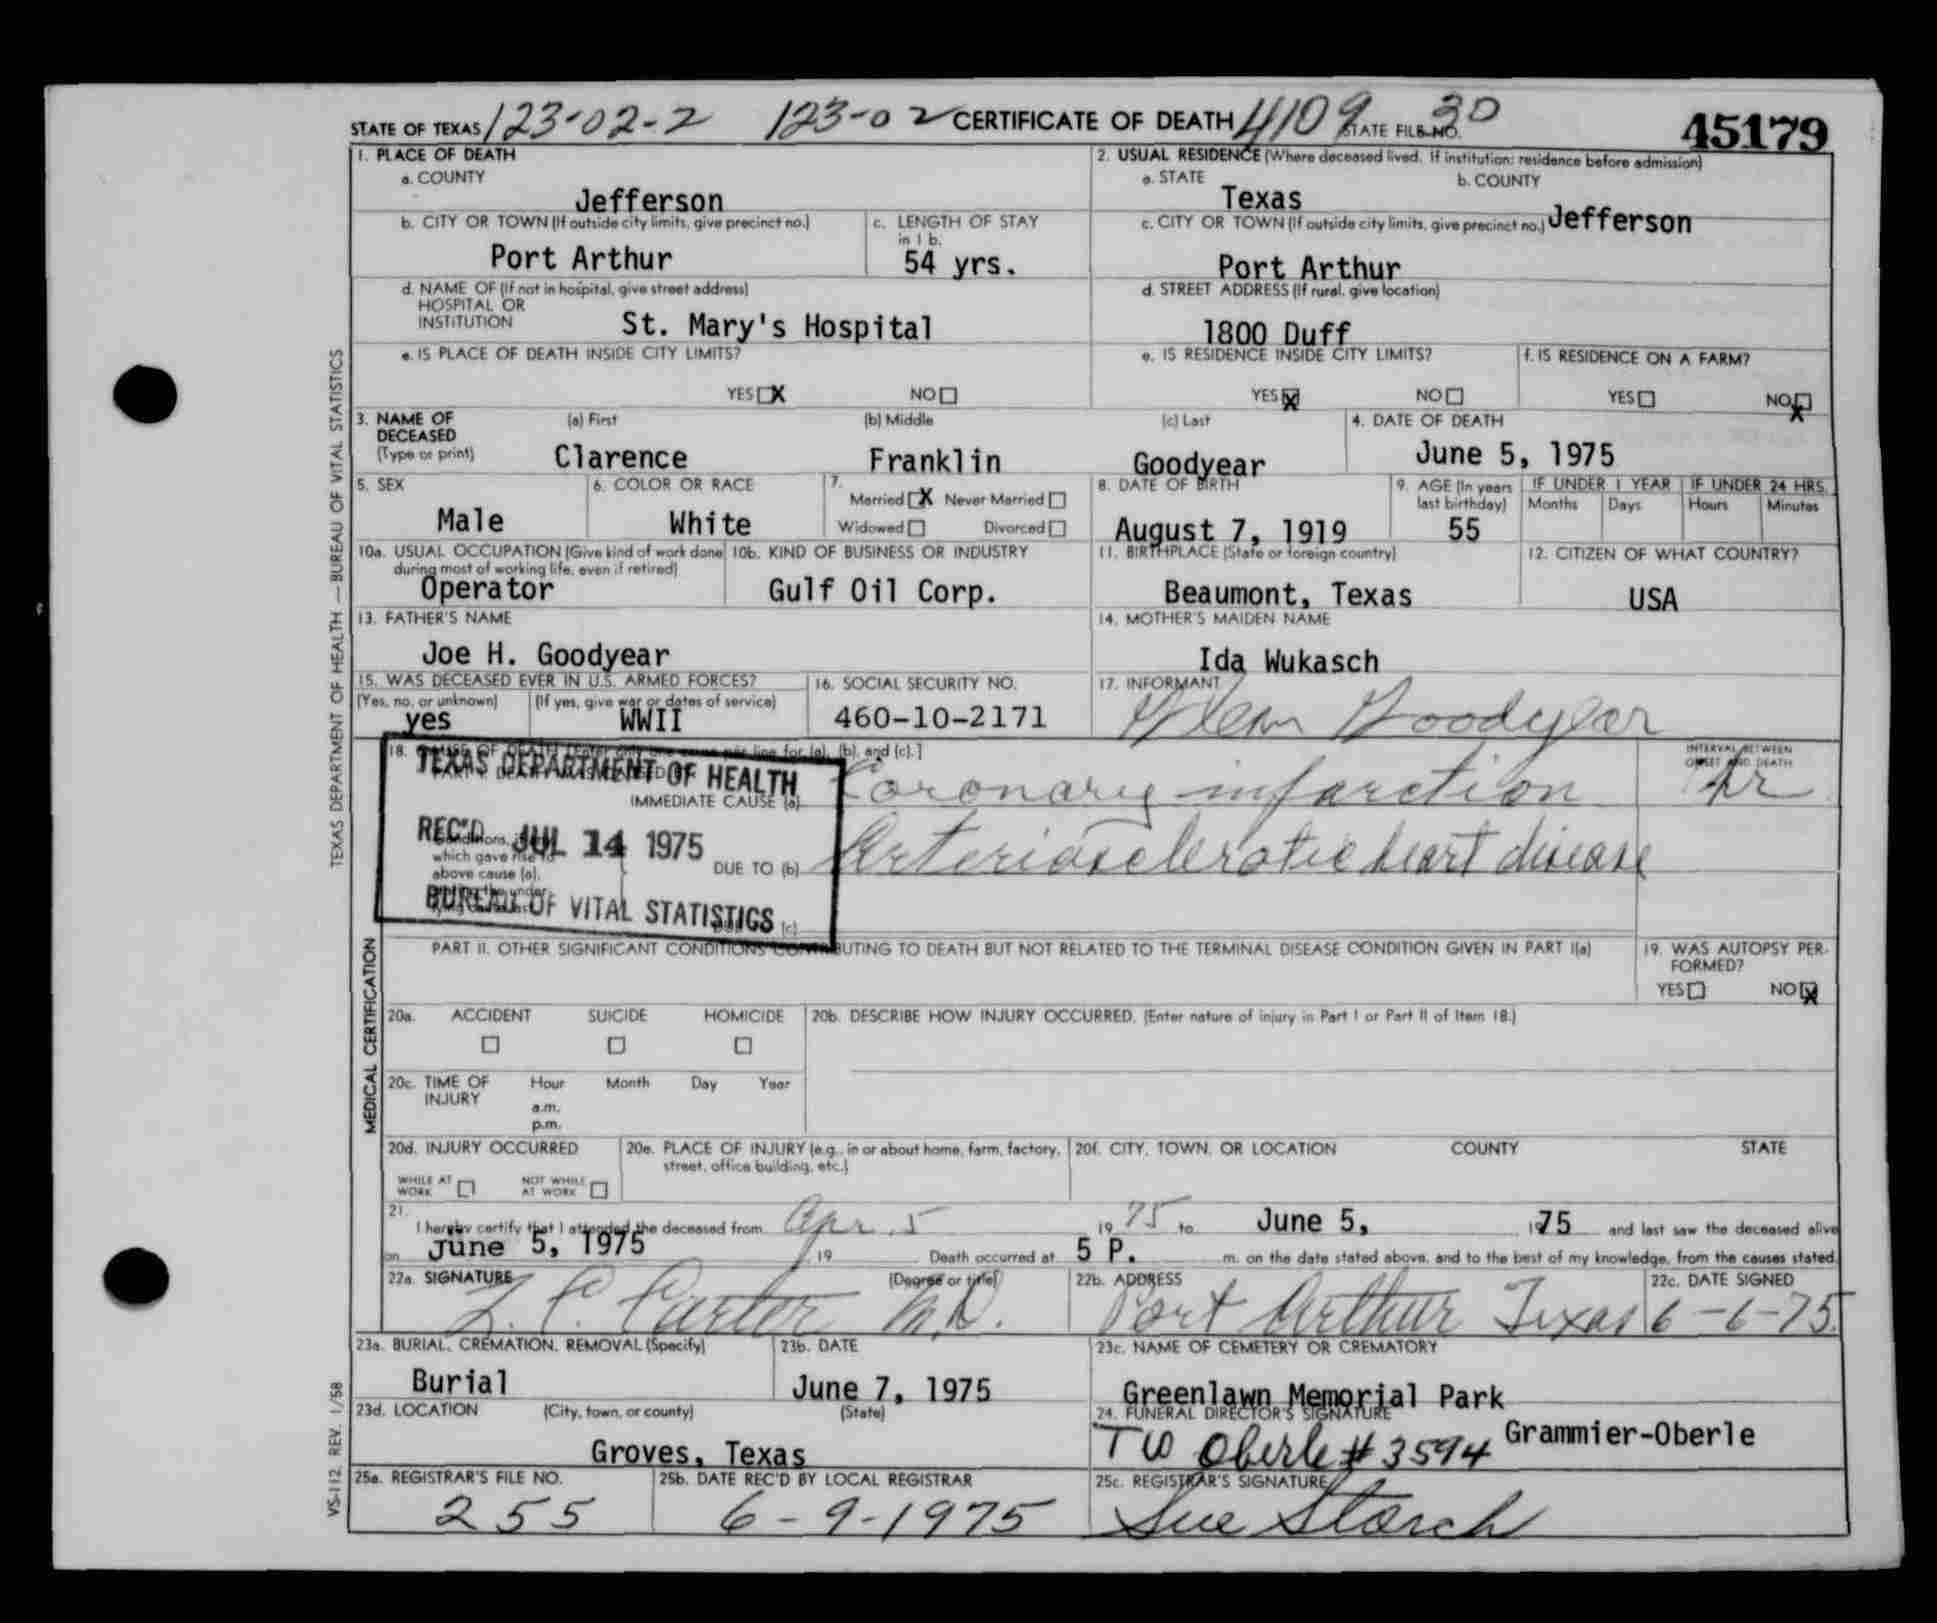 STATE OF TEXAS 123-02-2 123-02 CERTIFICATE OF DEATH 4109 STATE FILE NO. 30 45179
1. PLACE OF DEATH
a. COUNTY
Jefferson
2. USUAL RESIDENCE (Where deceased lived. If institution: residence before admission)
a. STATE
Texas
b. COUNTY
Jefferson
b. CITY OR TOWN (If outside city limits, give precinct no.)
Port Arthur
c. LENGTH OF STAY
in 1 b.
54 yrs.
c. CITY OR TOWN (If outside city limits, give precinct no.)
Port Arthur
d. NAME OF (If not in hospital, give street address)
HOSPITAL OR
INSTITUTION St. Mary's Hospital
d. STREET ADDRESS (If rural, give location)
1800 Duff
e. IS PLACE OF DEATH INSIDE CITY LIMITS?
YES X NO
e. IS RESIDENCE INSIDE CITY LIMITS?
YES X NO
f. IS RESIDENCE ON A FARM?
YES NO X
3. NAME OF
DECEASED
(Type or print)
(a) First
Clarence
(b) Middle
Franklin
(c) Last
Goodyear
4. DATE OF DEATH
June 5, 1975
5. SEX
Male
6. COLOR OR RACE
White
7.
Married X Never Married
Widowed Divorced
8. DATE OF BIRTH
August 7, 1919
9. AGE (In years
last birthday)
55
IF UNDER 1 YEAR
Months Days
IF UNDER 24 HRS.
Hours Minutes
10a. USUAL OCCUPATION (Give kind of work done
during most of working life, even if retired)
Operator
10b. KIND OF BUSINESS OR INDUSTRY
Gulf Oil Corp.
11. BIRTHPLACE (State or foreign country)
Beaumont, Texas
12. CITIZEN OF WHAT COUNTRY?
USA
13. FATHER'S NAME
Joe H. Goodyear
14. MOTHER'S MAIDEN NAME
Ida Wukasch
15. WAS DECEASED EVER IN U.S. ARMED FORCES?
(Yes, no, or unknown)
yes
(If yes, give war or dates of service)
WWII
16. SOCIAL SECURITY NO.
460-10-2171
17. INFORMANT
Glenn Goodyear
18. CAUSE OF DEATH [Enter only one cause per line for (a), (b), and (c).]
TEXAS DEPARTMENT OF HEALTH
IMMEDIATE CAUSE (a) Coronary infarction
INTERVAL BETWEEN
ONSET AND DEATH
hr
REC'D JUL 14 1975
Conditions,
which gave rise to
above cause (a),
DUE TO (b) Arteriosclerotic heart disease
BUREAU OF VITAL STATISTICS
(c)
PART II. OTHER SIGNIFICANT CONDITIONS CONTRIBUTING TO DEATH BUT NOT RELATED TO THE TERMINAL DISEASE CONDITION GIVEN IN PART I(a)
19. WAS AUTOPSY PER-
FORMED?
YES NO X
20a. ACCIDENT SUICIDE HOMICIDE
20b. DESCRIBE HOW INJURY OCCURRED. (Enter nature of injury in Part I or Part II of Item 18.)
20c. TIME OF
INJURY
Hour Month Day Year
a.m.
p.m.
20d. INJURY OCCURRED
WHILE AT
WORK
NOT WHILE
AT WORK
20e. PLACE OF INJURY (e.g., in or about home, farm, factory,
street, office building, etc.)
20f. CITY, TOWN, OR LOCATION COUNTY STATE
21.
I hereby certify that I attended the deceased from Apr. 5 1975 to June 5, 1975 and last saw the deceased alive
on June 5, 1975 19 Death occurred at 5 P. m. on the date stated above, and to the best of my knowledge, from the causes stated.
22a. SIGNATURE (Degree or title)
L. C. Carter M.D.
22b. ADDRESS
Port Arthur Texas
22c. DATE SIGNED
6-6-75
23a. BURIAL, CREMATION, REMOVAL (Specify)
Burial
23b. DATE
June 7, 1975
23c. NAME OF CEMETERY OR CREMATORY
Greenlawn Memorial Park
23d. LOCATION (City, town, or county) (State)
Groves, Texas
24. FUNERAL DIRECTOR'S SIGNATURE
T W Oberle # 3594 Grammier-Oberle
25a. REGISTRAR'S FILE NO.
255
25b. DATE REC'D BY LOCAL REGISTRAR
6-9-1975
25c. REGISTRAR'S SIGNATURE
Sue Storch
TEXAS DEPARTMENT OF HEALTH — BUREAU OF VITAL STATISTICS
MEDICAL CERTIFICATION
VS-112 REV. 1/58